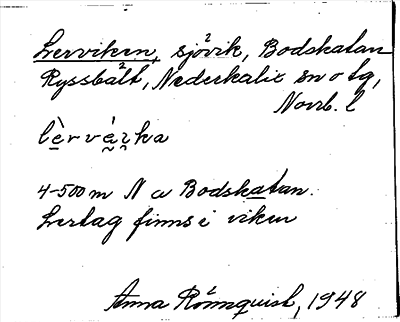 Lerviken, sjövik, Bodskatan
Ryssbält, Nederkalix sn o tg,
Norrb. l
lèrvá̤ı̥ka
4-500 m N a Bodskatan.
Lertag finns i viken
Anna Rönnquist, 1948